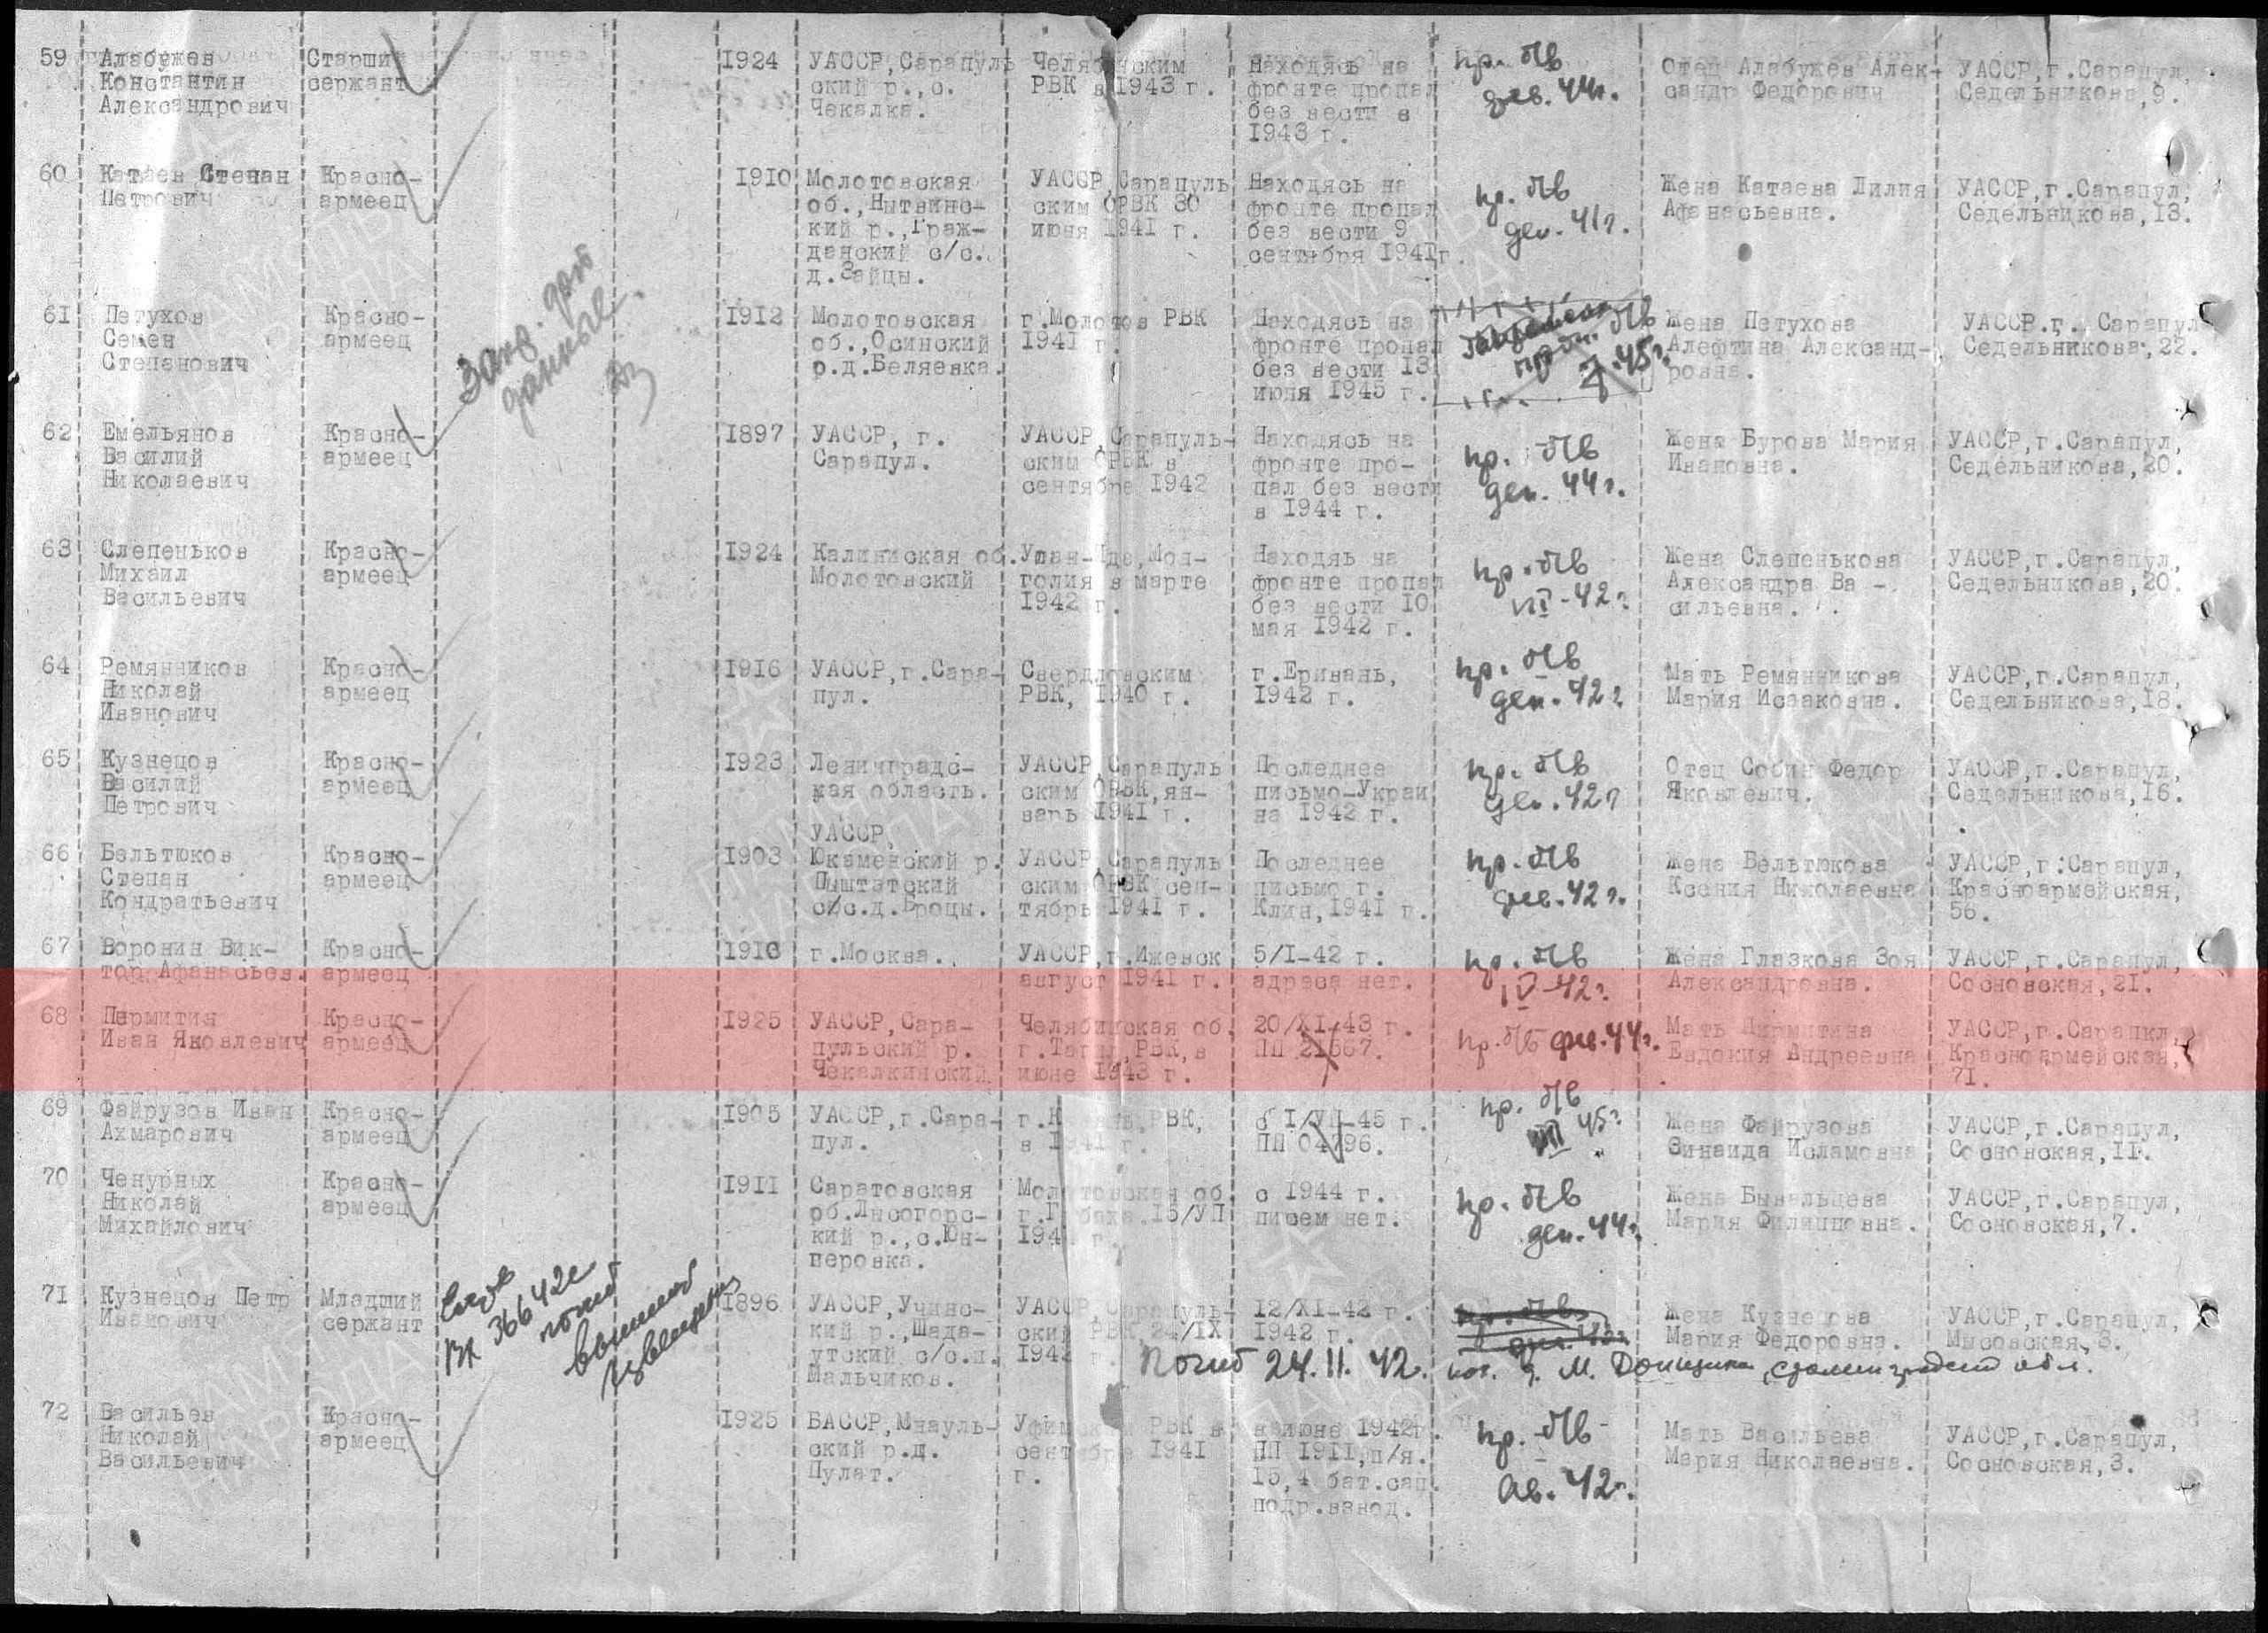 59
Алабужев
Константин
Александрович
Старший
сержант
1924
УАССР,Сарапуль
ский р.,с.
Чекалка.
Челябинским
РВК в 1943 г.
Находясь на
фронте пропал
без вести в
1943 г.
пр. б/в
44г.
Отец Алабужев Алек-
сандр Федорович
УАССР,г.Сарапул,
Седельникова,9.
60
Катаев Степан
Петрович
Красно-
армеец
1910
Молотовская
об.,Нытвинс-
кий р.,Граж-
данский с/с.
д.Зайцы.
УАССР,Сарапуль
ским ОРВК 30
июня 1941 г.
Находясь на
фронте пропал
без вести 9
сентября 1941г.
пр. б/в
дек. 41г.
Жена Катаева Лилия
Афанасьевна.
УАССР,г.Сарапул,
Седельникова,13.
61
Петухов
Семен
Степанович
Красно-
армеец
данные
1912
Молотовская
об.,Осинский
р.д.Беляевка.
г.Молотов РВК
1941 г.
Находясь на
фронте пропал
без вести 13
июня 1945 г.
б/в
45г.
Жена Петухова
Алефтина Александ-
ровна.
УАССР.г. Сарапул
Седельникова,22.
62
Емельянов
Василий
Николаевич
Красно-
армеец
1897
УАССР, г.
Сарапул.
УАССР,Сарапуль-
ским ОРВК в
сентябре 1942
Находясь на
фронте про-
пал без вести
в 1944 г.
пр. б/в
дек. 44г.
Жена Бурова Мария
Ивановна.
УАССР,г.Сарапул,
Седельникова,20.
63
Слепеньков
Михаил
Васильевич
Красно-
армеец
1924
Калининская об.
Молотовский
Улан-Уде,Мон-
голия в марте
1942 г.
Находяь на
фронте пропал
без вести 10
мая 1942 г.
пр. б/в
42г
Жена Слепенькова
Александра Ва -
сильевна.
УАССР,г.Сарапул,
Седельникова,20.
64
Ремянников
Николай
Иванович
Красно-
армеец
1916
УАССР,г.Сара-
пул.
Свердловским
РВК, 1940 г.
г.Еривань,
1942 г.
пр. б/в
дек. 42г
Мать Ремянникова
Мария Исааковна.
УАССР,г.Сарапул,
Седельникова,18.
65
Кузнецов
Василий
Петрович
Красно-
армеец
1923
Ленинградс-
кая область.
УАССР,Сарапуль
ским ОРВК,ян-
варь 1941 г.
Последнее
письмо-Украи
на 1942 г.
пр. б/в
дек. 42г
Отец Собин Федор
Яковлевич.
УАССР,г.Сарапул,
Седельникова,16.
66
Бельтюков
Степан
Кондратьевич
Красно-
армеец
1903
УАССР,
Юкаменский р.
Пыштатский
с/с.д.Вроцы.
УАССР,Сарапуль
ским ОРВК сен-
тябрь 1941 г.
Последнее
письмо г.
Клин,1941 г.
пр. б/в
42г.
Жена Бельтюкова
Ксения Николаевна
УАССР,г.Сарапул,
Красноармейская,
56.
67
Воронин Вик-
тор Афанасьев.
Красно-
армеец
г.Москва.
УАССР,г.Ижевск
август 1941 г.
5/I-42 г.
адреса нет.
пр. б/в
IV-42г.
Жена Глазкова Зоя
Александровна.
УАССР,г.Сарапул,
Сосновская,21.
68
Пермитин
Иван Яковлевич
Красно-
армеец
1925
УАССР,Сара-
пульский р.
Чекалкинский
Челябинская об.
г.Тагил,РВК,в
июне 1943 г.
20/XI-43 г.
ПП 21567.
пр. б/в 44г.
Мать Пирмитина
Евдокия Андреевна
УАССР,г.Сарапкл,
Красноармейская,
71.
69
Файрузов Иван
Ахмарович
Красно-
армеец
1905
УАССР,г.Сара-
пул.
РВК,
в 1941 г.
ПП 04796.
пр. б/в
45г.
Жена Файрузова
Зинаида Исламовна
УАССР,г.Сарапул,
Сосновская,11.
70
Ченурных
Николай
Михайлович
Красно-
армеец
1911
Саратовская
об.Лысогорс-
кий р.,с.Юн-
перовка.
Молотовская об.
15/УП
194 г.
с 1944 г.
писем нет.
пр. б/в
дек. 44г.
Жена Бывальцева
Мария Филипповна.
УАССР,г.Сарапул,
Сосновская,7.
71
Кузнецов Петр
Иванович
Младший
сержант
погиб
1896
УАССР,Учинс-
кий р.,Шада-
утский с/с.п.
Мальчиков.
УАССР,Сарапуль-
ский РВК,24/IX
1942 г.
12/XI-42 г.
1942 г.
Погиб 24.11.42.
обл.
Жена Кузнецова
Мария Федоровна.
УАССР,г.Сарапул,
Мысовская,3.
72
Васильев
Николай
Васильевич
Красно-
армеец
1925
БАССР,Мнауль-
ский р.д.
Пулат.
Уфимским РВК в
сентябре 1941
г.
в июне 1942г.
ПП 1911,п/я.
15,4 бат.сап.
подр.взвод.
пр. б/в
ав. 42г.
Мать Васильева
Мария Николаевна.
УАССР,г.Сарапул,
Сосновская,3.